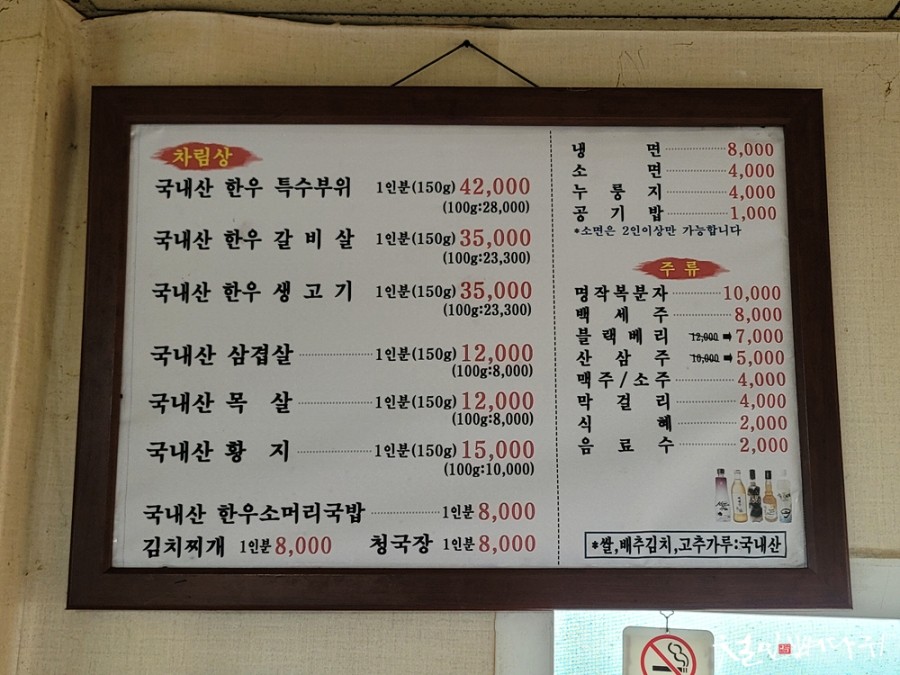 차림상
국내산 한우 특수부위 1인분(150g) 42,000
(100g:28,000)
국내산 한우 갈비살 1인분(150g) 35,000
(100g:23,300)
국내산 한우 생고기 1인분(150g) 35,000
(100g:23,300)
국내산 삼겹살 1인분(150g) 12,000
(100g:8,000)
국내산 목살 1인분(150g) 12,000
(100g:8,000)
국내산 황지 1인분(150g) 15,000
(100g:10,000)
국내산 한우소머리국밥 1인분 8,000
김치찌개 1인분 8,000 청국장 1인분 8,000
냉면 8,000
소면 4,000
누룽지 4,000
공기밥 1,000
*소면은 2인이상만 가능합니다
주류
명작복분자 10,000
백세주 8,000
블랙베리 12,000 ➡ 7,000
산삼주 10,000 ➡ 5,000
맥주/소주 4,000
막걸리 4,000
식혜 2,000
음료수 2,000
*쌀,배추김치,고추가루:국내산